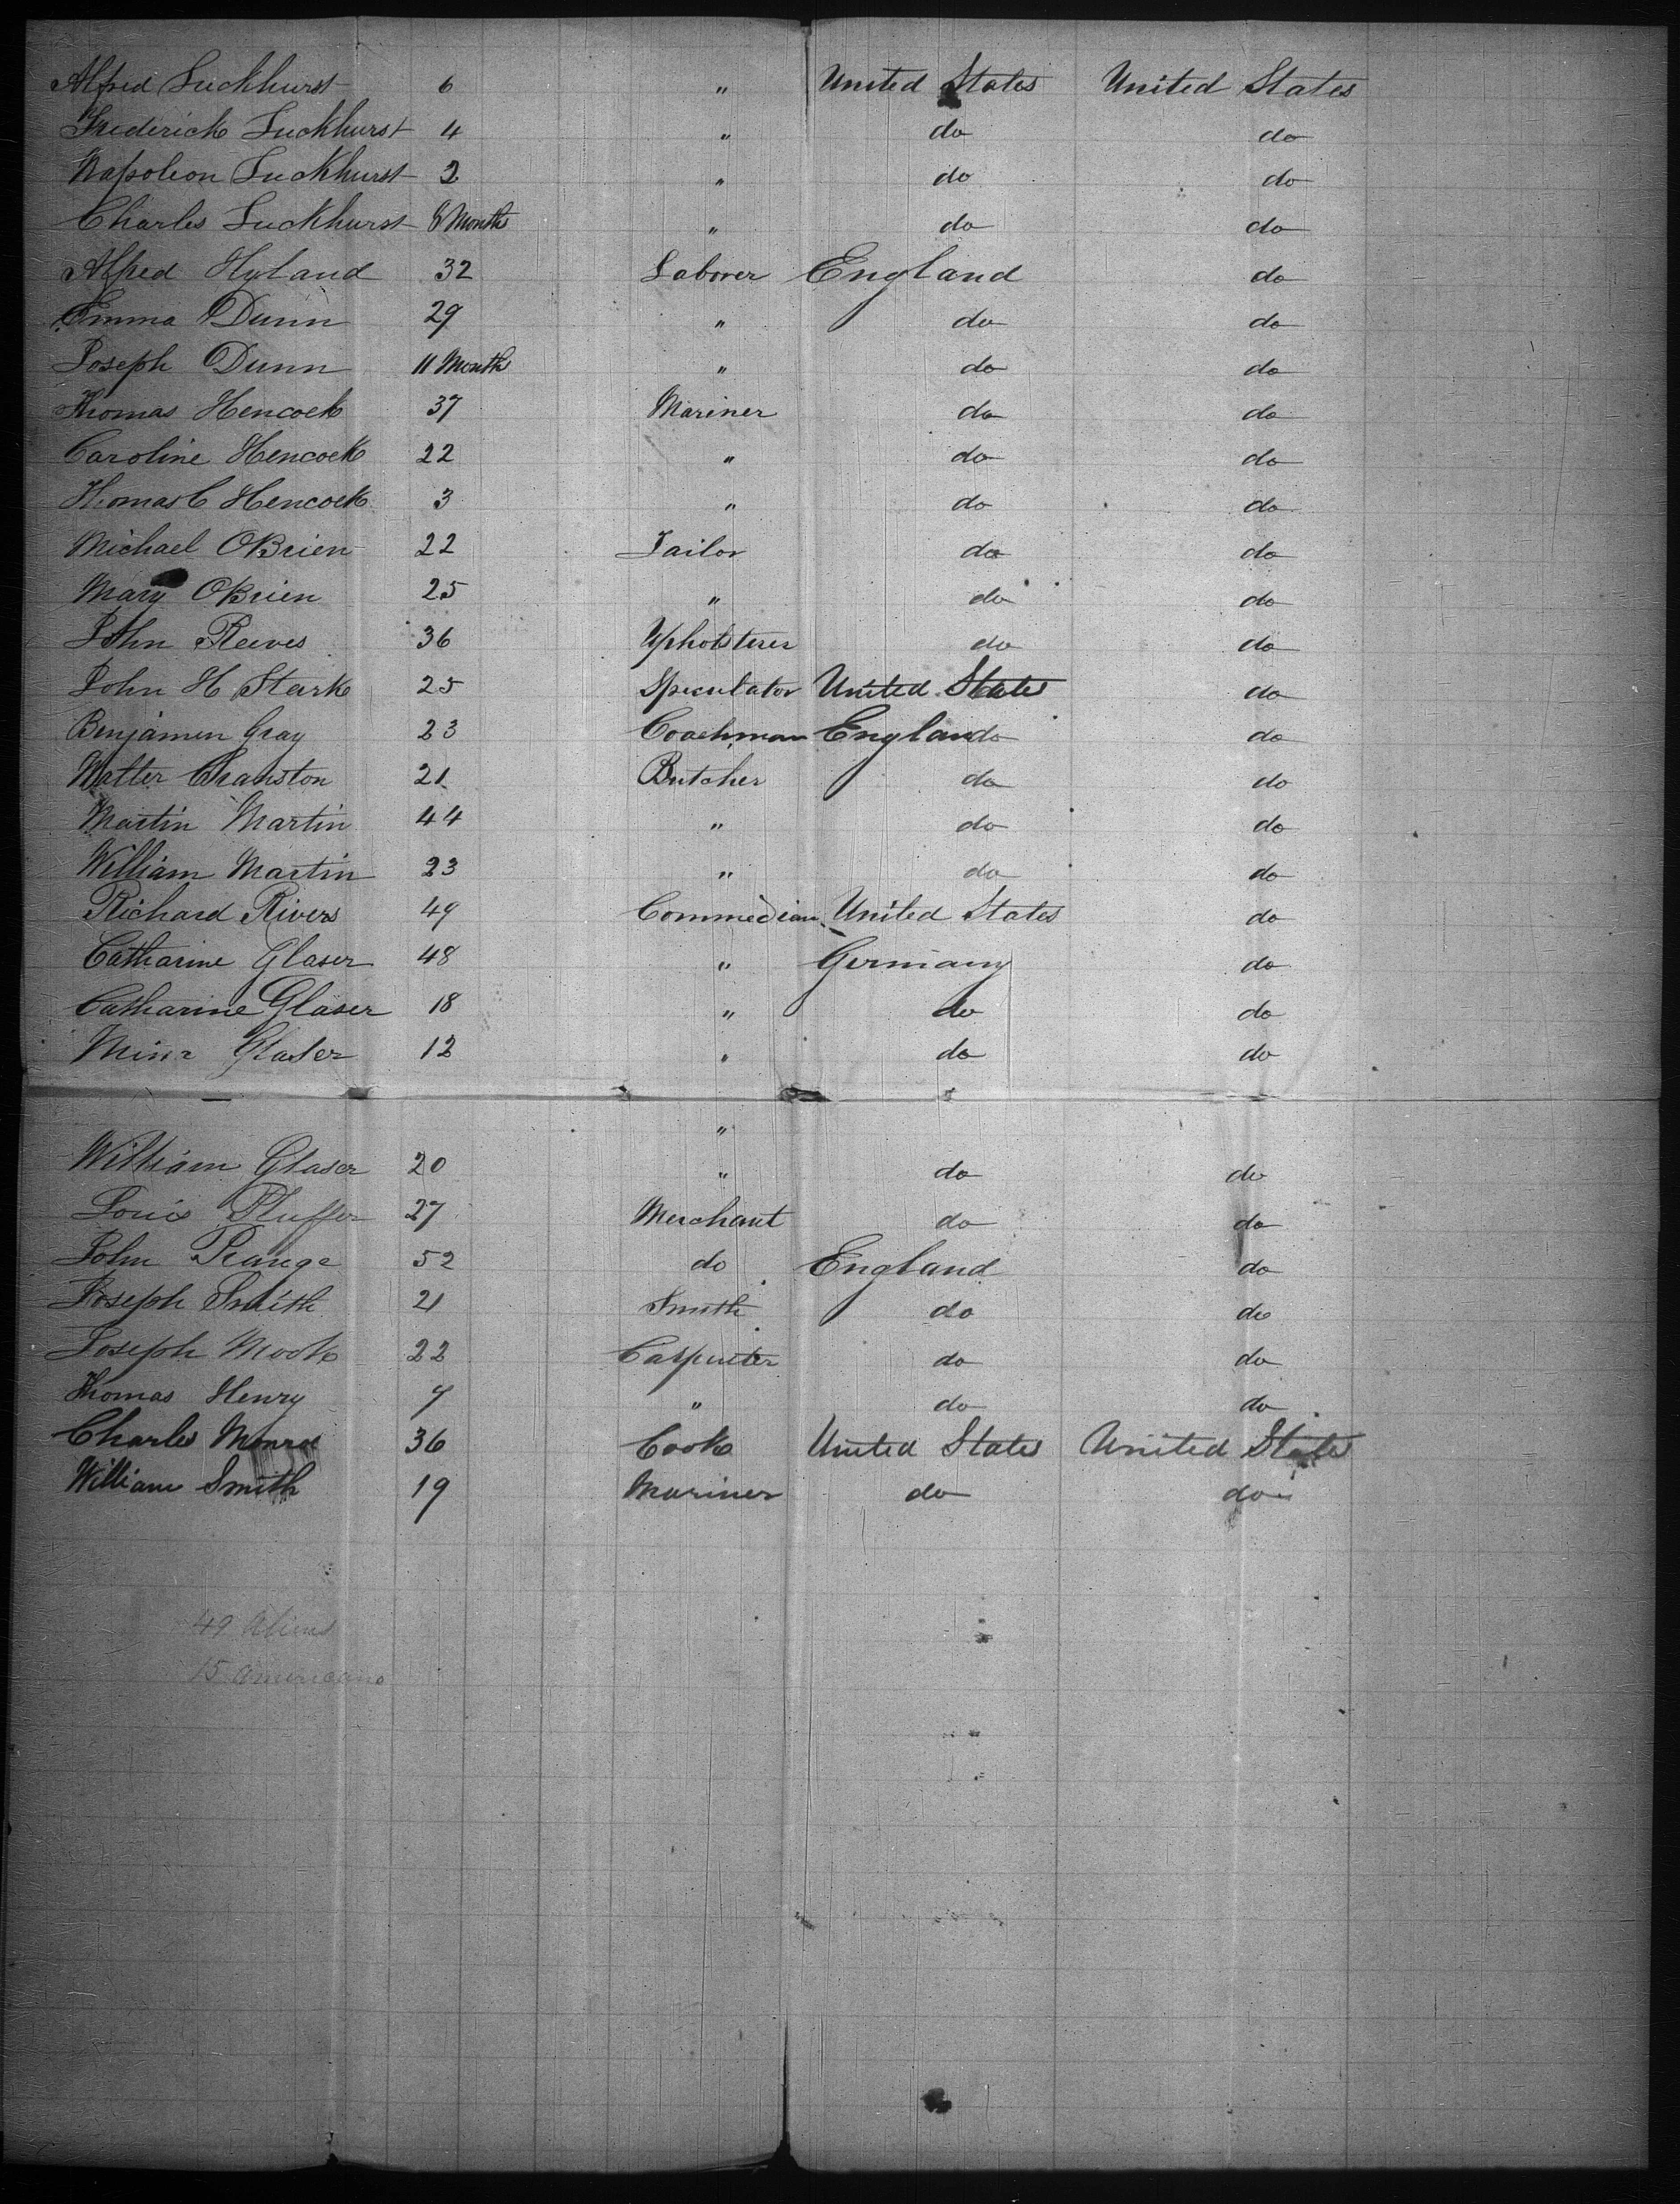 Alfred Luckhurst 6 " United States United States
Frederick Luckhurst 4 " do do
Napoleon Luckhurst 2 " do do
Charles Luckhurst 8 Months " do do
Alfred Hyland 32 Laborer England do
Emma Dunn 29 " do do
Joseph Dunn 11 Month " do do
Thomas Hencock 37 Mariner do do
Caroline Hencock 22 " do do
Thomas C Hencock 3 " do do
Michael OBrien 22 Tailor do do
Mary OBrien 25 " do do
John Reeves 36 Upholsterer do do
John H Stark 25 Speculator United States do
Benjamen Gray 23 Coachman England do do
Walter Cranston 21 Butcher do do
Martin Martin 44 " do do
William Martin 23 " do do
Richard Rivers 49 Commedian United States do
Catharine Glaser 48 " Germany do
Catharine Glaser 18 " do do
Mina Glaser 12 " do do
"
William Glaser 20 " do do
Louis 27 Merchant do do
John 52 do England do
Joseph Smith 21 Smith do do
Joseph Mook 22 Carpenter do do
Thomas Henry 7 " do do
Charles Monroe 36 Cook United States United States
William Smith 19 Mariner do do
49 Aliens
15 Americans